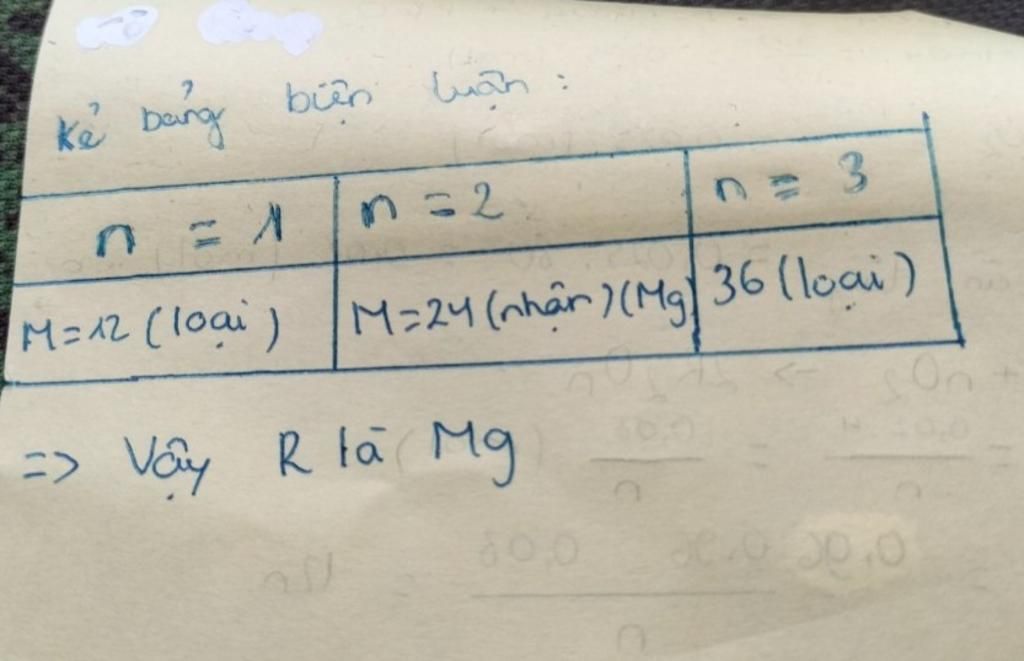 Kẻ bảng biện luận :
n = 1 n = 2 n = 3
M=12 (loại) M=24 (nhận) (Mg) 36 (loại)
=> Vậy R là Mg